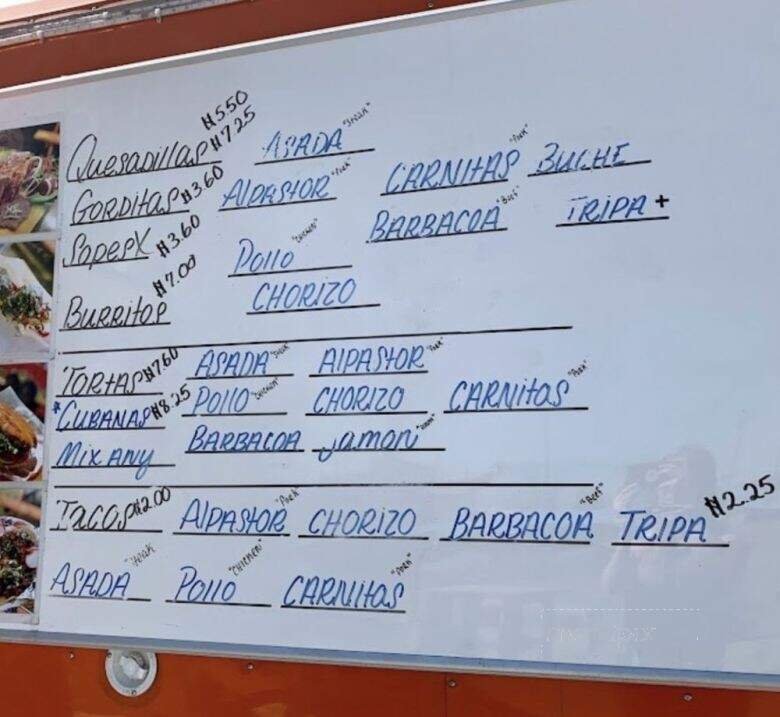 $5.50
Quesadillas $7.25 ASADA "Steak"
Gorditas $3.60 AlPAStOR "Pork" CARNitAS "Pork" BUCHE
SopesX $3.60 Pollo "CHiCKEN" BARBACOA "Beef" TRIPA +
BURRitos $7.00 CHORIZO
TORtAS $7.60 ASADA "Steak" AlPAStOR "Pork"
*CUBANAS $8.25 Pollo "CHiCKEN" CHORIZO CARNitas "Pork"
Mix ANY BARBACOA Jamon
TACOS $2.00 AlPAStOR "Pork" CHORIZO BARBACOA "Beef" TRIPA $2.25
ASADA "Steak" Pollo "CHiCKEN" CARNitas "Pork"